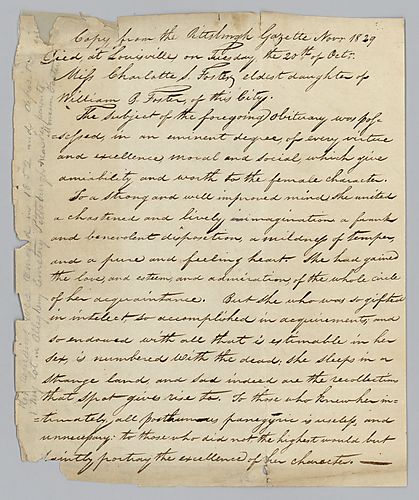 Copy from the Pittsburgh Gazette Novr 1829
Died at Louisville on Tuesday the 20th of Octr.
Miss Charlotte S. Foster, eldest daughter of
William B. Foster, of this City.
The Subject of the foregoing Obituary was pos-
sessed, in an eminent degree, of every virtue
and excellence moral and social which give
amiability and worth to the female character.
To a strong and well improved mind she united
a chastened and lively imagination a frank
and benevolent disposition, a mildness of temper,
and a pure and feeling heart She had gained
the love, and esteem, and admiration, of the whole circle
of her acquaintance. But she who was so gifted
in intellect so accomplished in acquirements, and
so endowed with all that is estimable in her
sex, is numbered with the dead, she sleeps in a
strange land, and sad indeed are the recollections
that spot gives rise to. To those who knew her in-
-timately, all posthumous panegyric is useless, and
unnecessary: to those who did not the highest would but
faintly portray the excellence of her character.